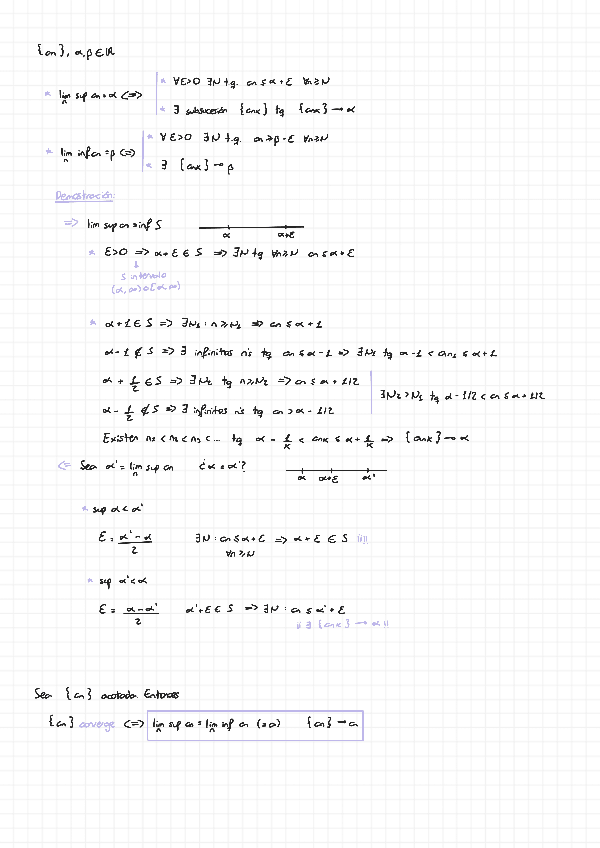 {an}, α, β ∈ ℝ
* lim sup an = α <=> * ∀ε>0 ∃N tq. an ≤ α + ε ∀n≥N
n
* ∃ subsucesión {ank} tq {ank} → α
* lim inf an = β <=> * ∀ε>0 ∃N t.q. an ≥ β - ε ∀n≥N
n
* ∃ {ank} → β
Demostración:
=> lim sup an = inf S
α α+ε
* ε>0 => α+ε ∈ S => ∃N tq ∀n≥N an ≤ α+ε
↓
S intervalo
(α,∞) o [α,∞)
* α+1 ∈ S => ∃N1 : n≥N1 => an ≤ α+1
α-1 ∉ S => ∃ infinitos n's tq an ≤ α-1 => ∃n1 tq α-1 < an1 ≤ α+1
α + 1/2 ∈ S => ∃N2 tq n≥N2 => an ≤ α + 1/2
∃n2 > n1 tq α - 1/2 < an ≤ α + 1/2
α - 1/2 ∉ S => ∃ infinitos n's tq an > α - 1/2
Existen n1 < n2 < n3 < ... tq α - 1/k < ank ≤ α + 1/k => {ank} → α
<= Sea α' = lim sup an ¿α = α'?
n
α α+ε α'
* sup α < α'
ε = (α' - α)/2 ∃N : an ≤ α+ε => α+ε ∈ S !!!!
∀n≥N
* sup α' < α
ε = (α - α')/2 α'+ε ∈ S => ∃N : an ≤ α'+ε
¡¡ ∃ {ank} → α !!
Sea {an} acotada. Entonces
{an} converge <=> lim sup an = lim inf an (= a) {an} → a
n n